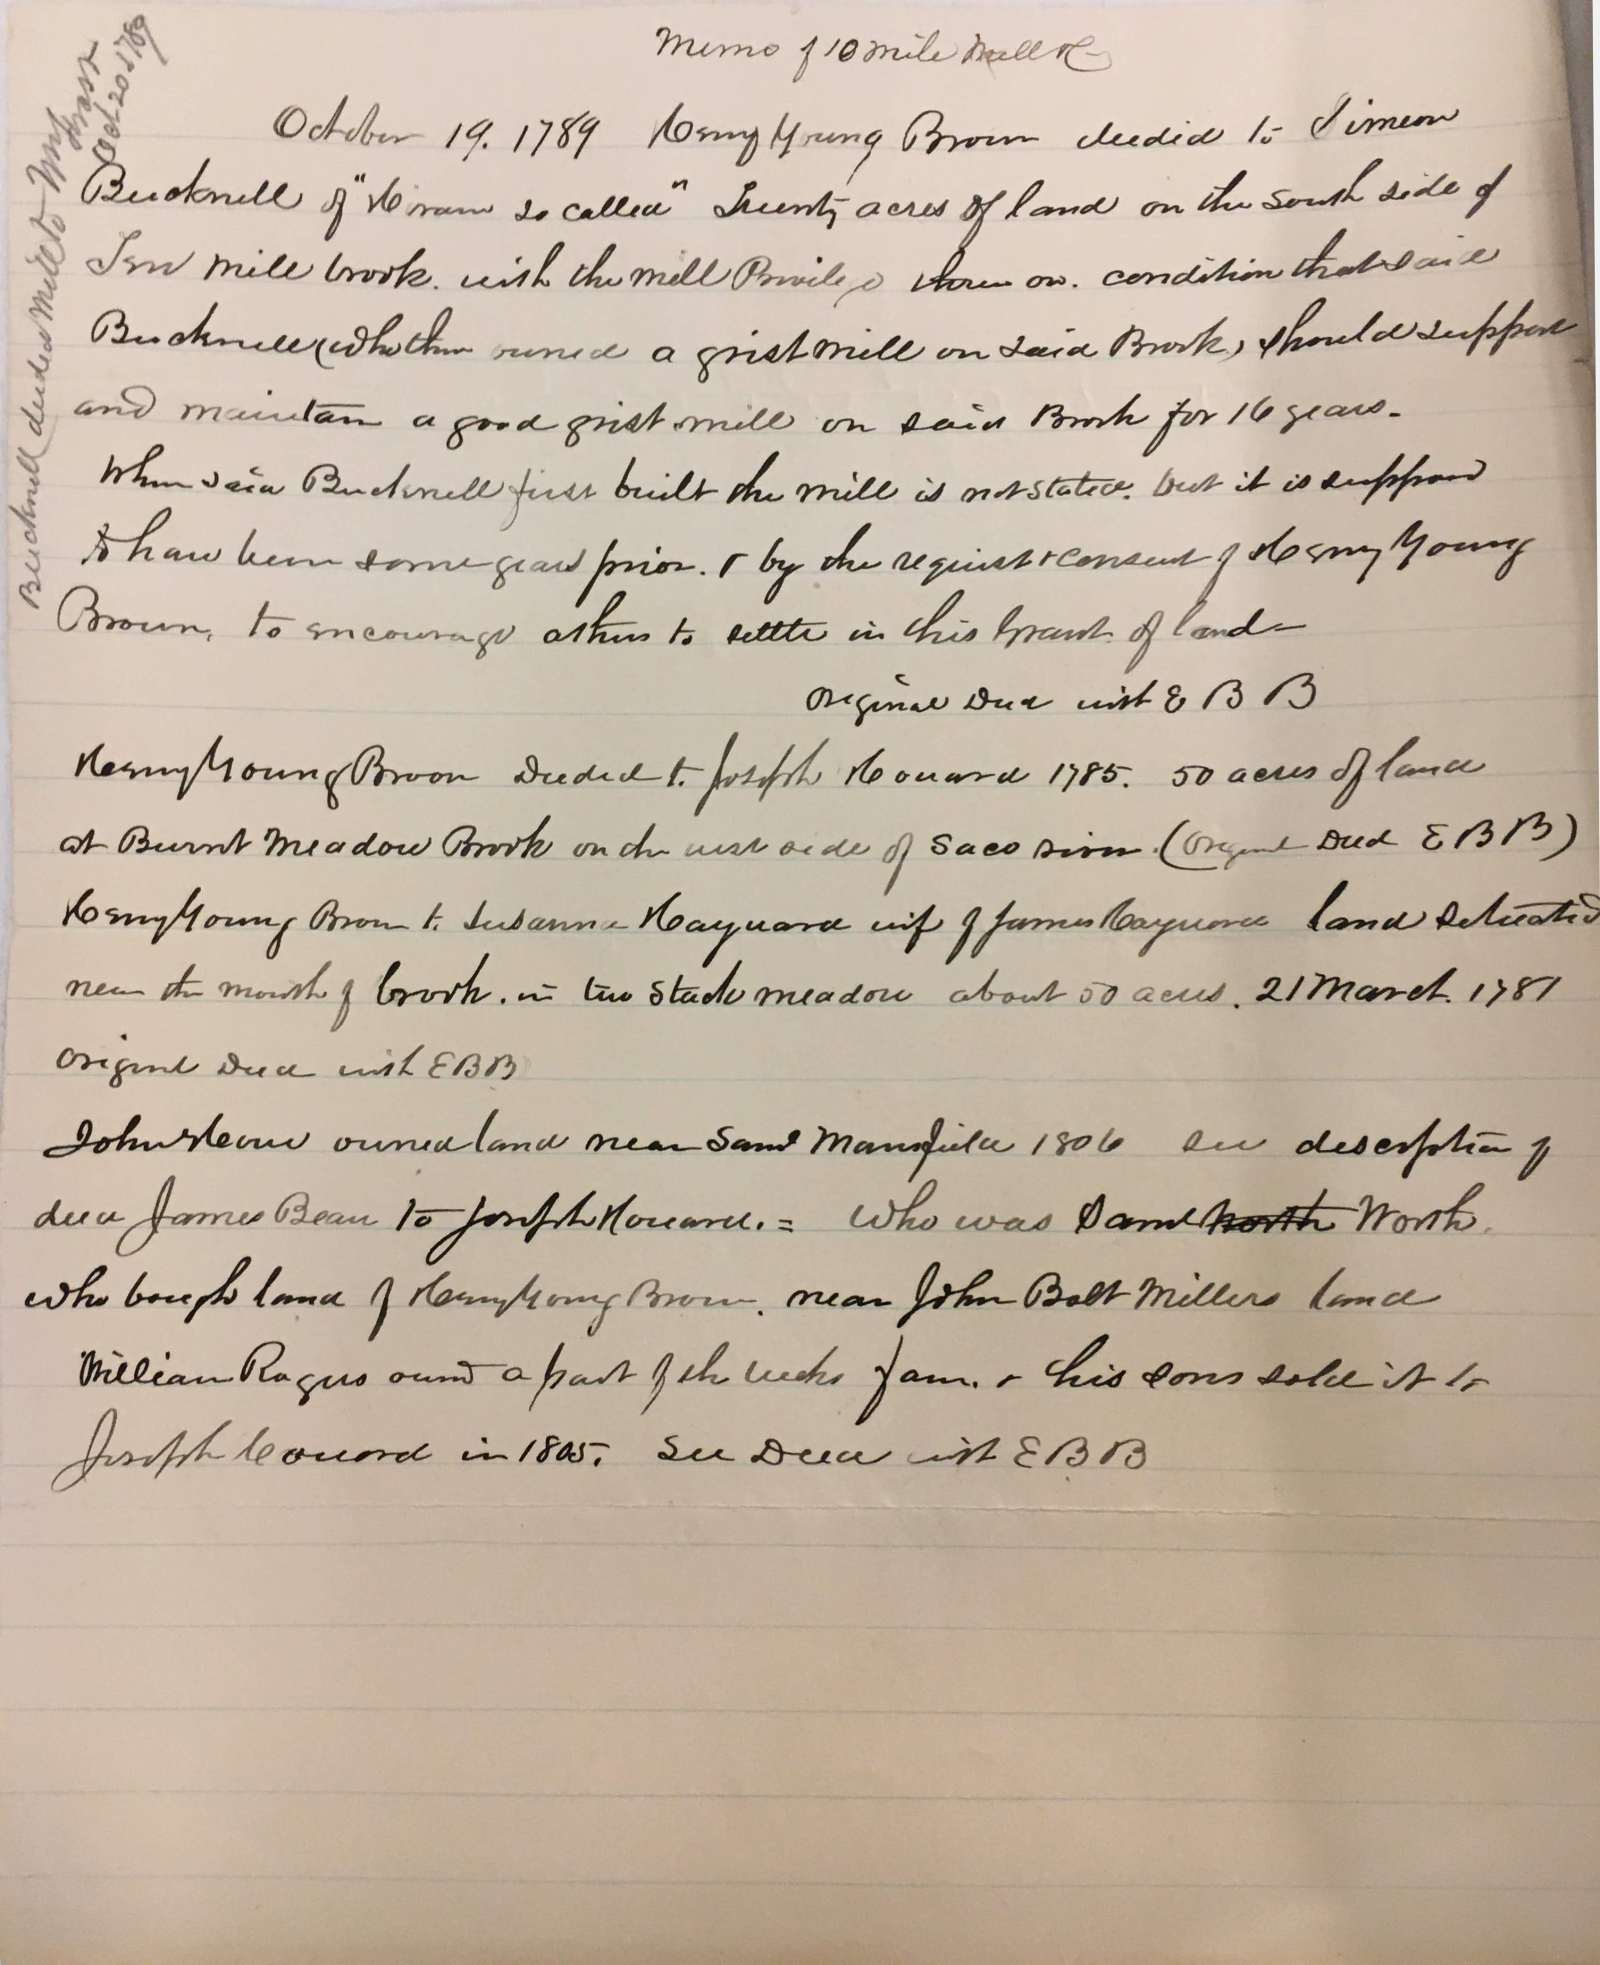 Memo of 10 Mile Mill &c
October 19. 1789 Henry Young Brown deeded to Simeon
Bucknell of "Hiram so called" Twenty acres of land on the South side of
Ten Mill brook. with the Mill Privilege thereon. condition that said
Bucknell (who then owned a grist mill on said Brook) should support
and maintain a good grist mill on said Brook for 16 years.
When said Bucknell first built the mill is not stated. but it is supposed
to have been some years prior. & by the request & consent of Henry Young
Brown, to encourage others to settle in this Grant of land-
Original Deed with E B B
Henry Young Brown Deeded to Joseph Howard 1785. 50 acres of land
at Burnt Meadow Brook on the west side of Saco River. (Original Deed E B B)
Henry Young Brown to Susanna Hayward wife of James Hayward land situated
near the mouth of brook. in two Stack meadow about 50 acres. 21 March. 1781
Original Deed with E B B
John Howe owned land near Saml Mansfield 1806 see description of
deed James Bean to Joseph Howard. = Who was Saml North Worth.
who bough land of Henry Young Brown. near John Bolt Millers land
William Rogers owned a part of the farm. & his sons sold it to
Joseph Howard in 1805. See Deed with E B B
Bucknell deeded Mill to
Oct 20 1789